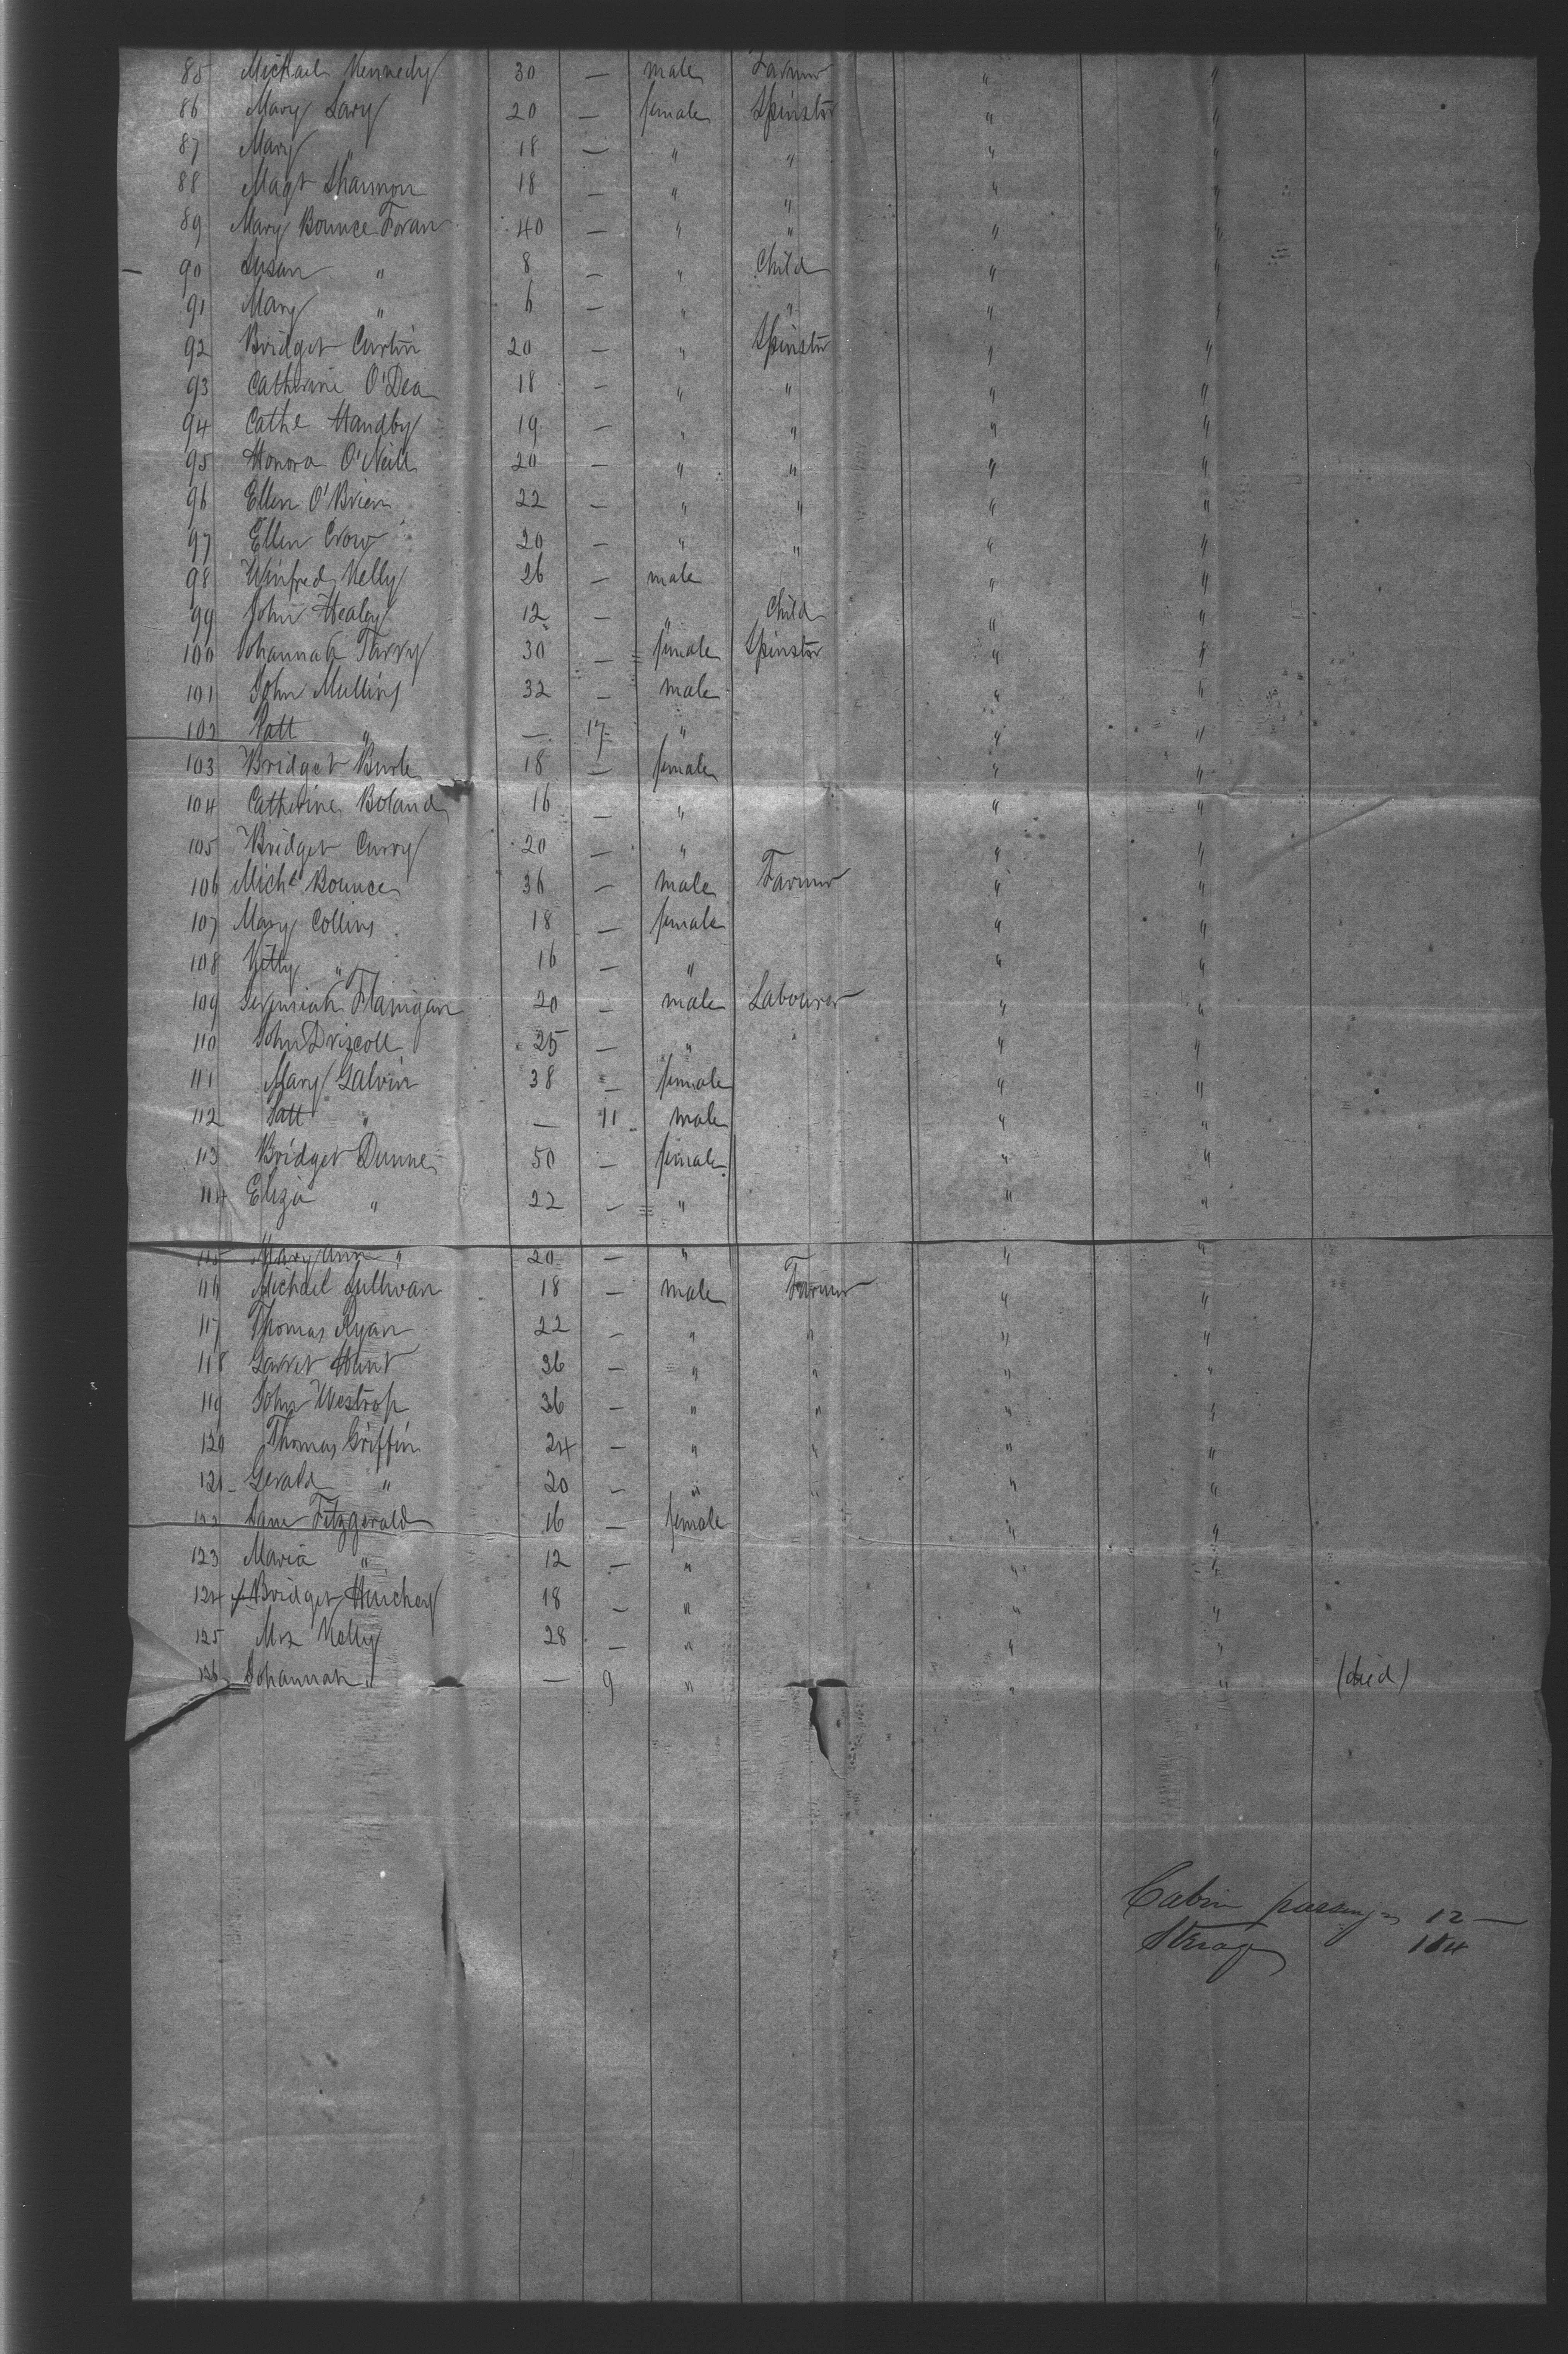 85 Michael Kennedy 30 — male Farmer " "
86 Mary Lary 20 — female Spinster " "
87 Mary " 18 — " " " "
88 Magt Shannon 18 — " " " "
89 Mary Bounce Foran 40 — " " " "
90 Susan " 8 — " Child " "
91 Mary " 6 — " " " "
92 Bridget Curtin 20 — " Spinster " "
93 Catherine O'Dea 18 — " " " "
94 Cathe Handby 19 — " " " "
95 Honora O'Neill 20 — " " " "
96 Ellen O'Brien 22 — " " " "
97 Ellen Crow 20 — " " " "
98 Winfred Kelly 26 — male " "
99 John Healey 12 — " Child " "
100 Johannah Tarry 30 — female Spinster " "
101 John Mullins 32 — male " "
102 Patt " — 17 " " "
103 Bridget Burke 18 — female " "
104 Catherine Boland 16 — " " "
105 Bridget Curry 20 — " " "
106 Michl Bounce 36 — male Farmer " "
107 Mary Collins 18 — female " "
108 Kitty " 16 — " " "
109 Jeremiah Flanigan 20 — male Labourer " "
110 John Driscoll 25 — " " "
111 Mary Galvin 38 — female " "
112 Patt " — 11 male " "
113 Bridget Dunne 50 — female " "
114 Eliza " 22 — " " "
115 Mary Ann " 20 — " " "
116 Michael Sullivan 18 — male Farmer " "
117 Thomas Ryan 22 — " " " "
118 Garret Hunt 36 — " " " "
119 John Westrop 36 — " " " "
120 Thomas Griffin 24 — " " " "
121 Gerald " 20 — " " " "
122 Jane Fitzgerald 16 — female " "
123 Maria " 12 — " " "
124 Bridget Huichey 18 — " " "
125 Mrs Kelly 28 — " " "
126 Johannah " — 9 " " " (died)
Cabin passengers 12 —
Sterage 114